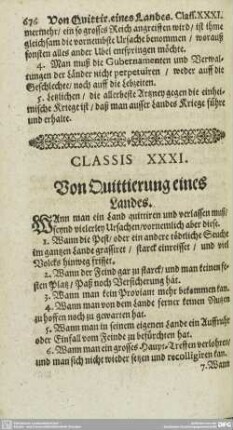 676 Von Quittir. eines Landes. Class. XXXI.
mermehr/ ein so grosses Reich angreiffen wird/ ist ihme
gleichsam die vornembste Ursache benommen/ worauß
sonsten alles ander Ubel entspringen möchte.
4. Man muß die Gubernamenten und Verwal-
tungen der Länder nicht perpetuiren/ weder auff die
Geschlechte/ noch auff die Lebzeiten.
5. Letzlichen/ die allerbeste Artzney gegen die einhei-
mische Kriege ist/ daß man ausser Landes Kriege führe
und erhalte.
CLASSIS XXXI.
Von Quittierung eines
Landes.
WAnn man ein Land quittiren und verlassen muß/
seynd vielerley Ursachen/ vornemlich aber diese.
1. Wann die Pest/ oder ein andere tödtliche Seuche
im gantzen Lande grassiret/ starck einreisset/ und viel
Volcks hinweg frisset.
2. Wann der Feind gar zu starck/ und man keinen fe-
sten Platz/ Paß noch Versicherung hat.
3. Wann man kein Proviant mehr bekommen kan.
4. Wann man von dem Lande ferner keinen Nutzen
zu hoffen noch zu gewarten hat.
5. Wann man in seinem eigenen Lande ein Auffruhr
oder Einfall vom Feinde zu befürchten hat.
6. Wann man ein grosses Haupt-Treffen verlohren/
und man sich nicht wieder setzen und recolligiren kan.
7. Wann